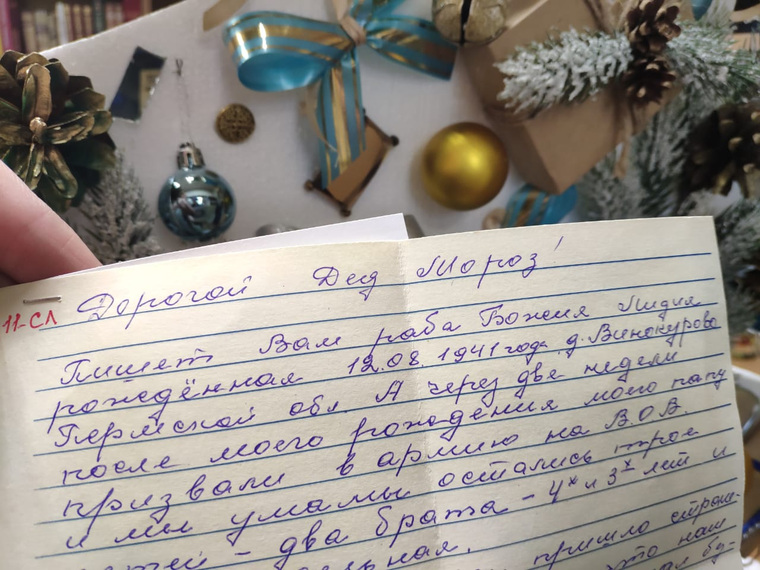 Дорогой Дед Мороз!
11-СЛ
Пишет Вам раба Божия Лидия
рождённая 12.08.1941 года д. Винокурово
Пермской обл. А через две недели
после моего рождения моего папу
призвали в армию на В.О.В.
и мы у мамы остались трое
- два брата - 4х и 3х лет и
пришло
что наш